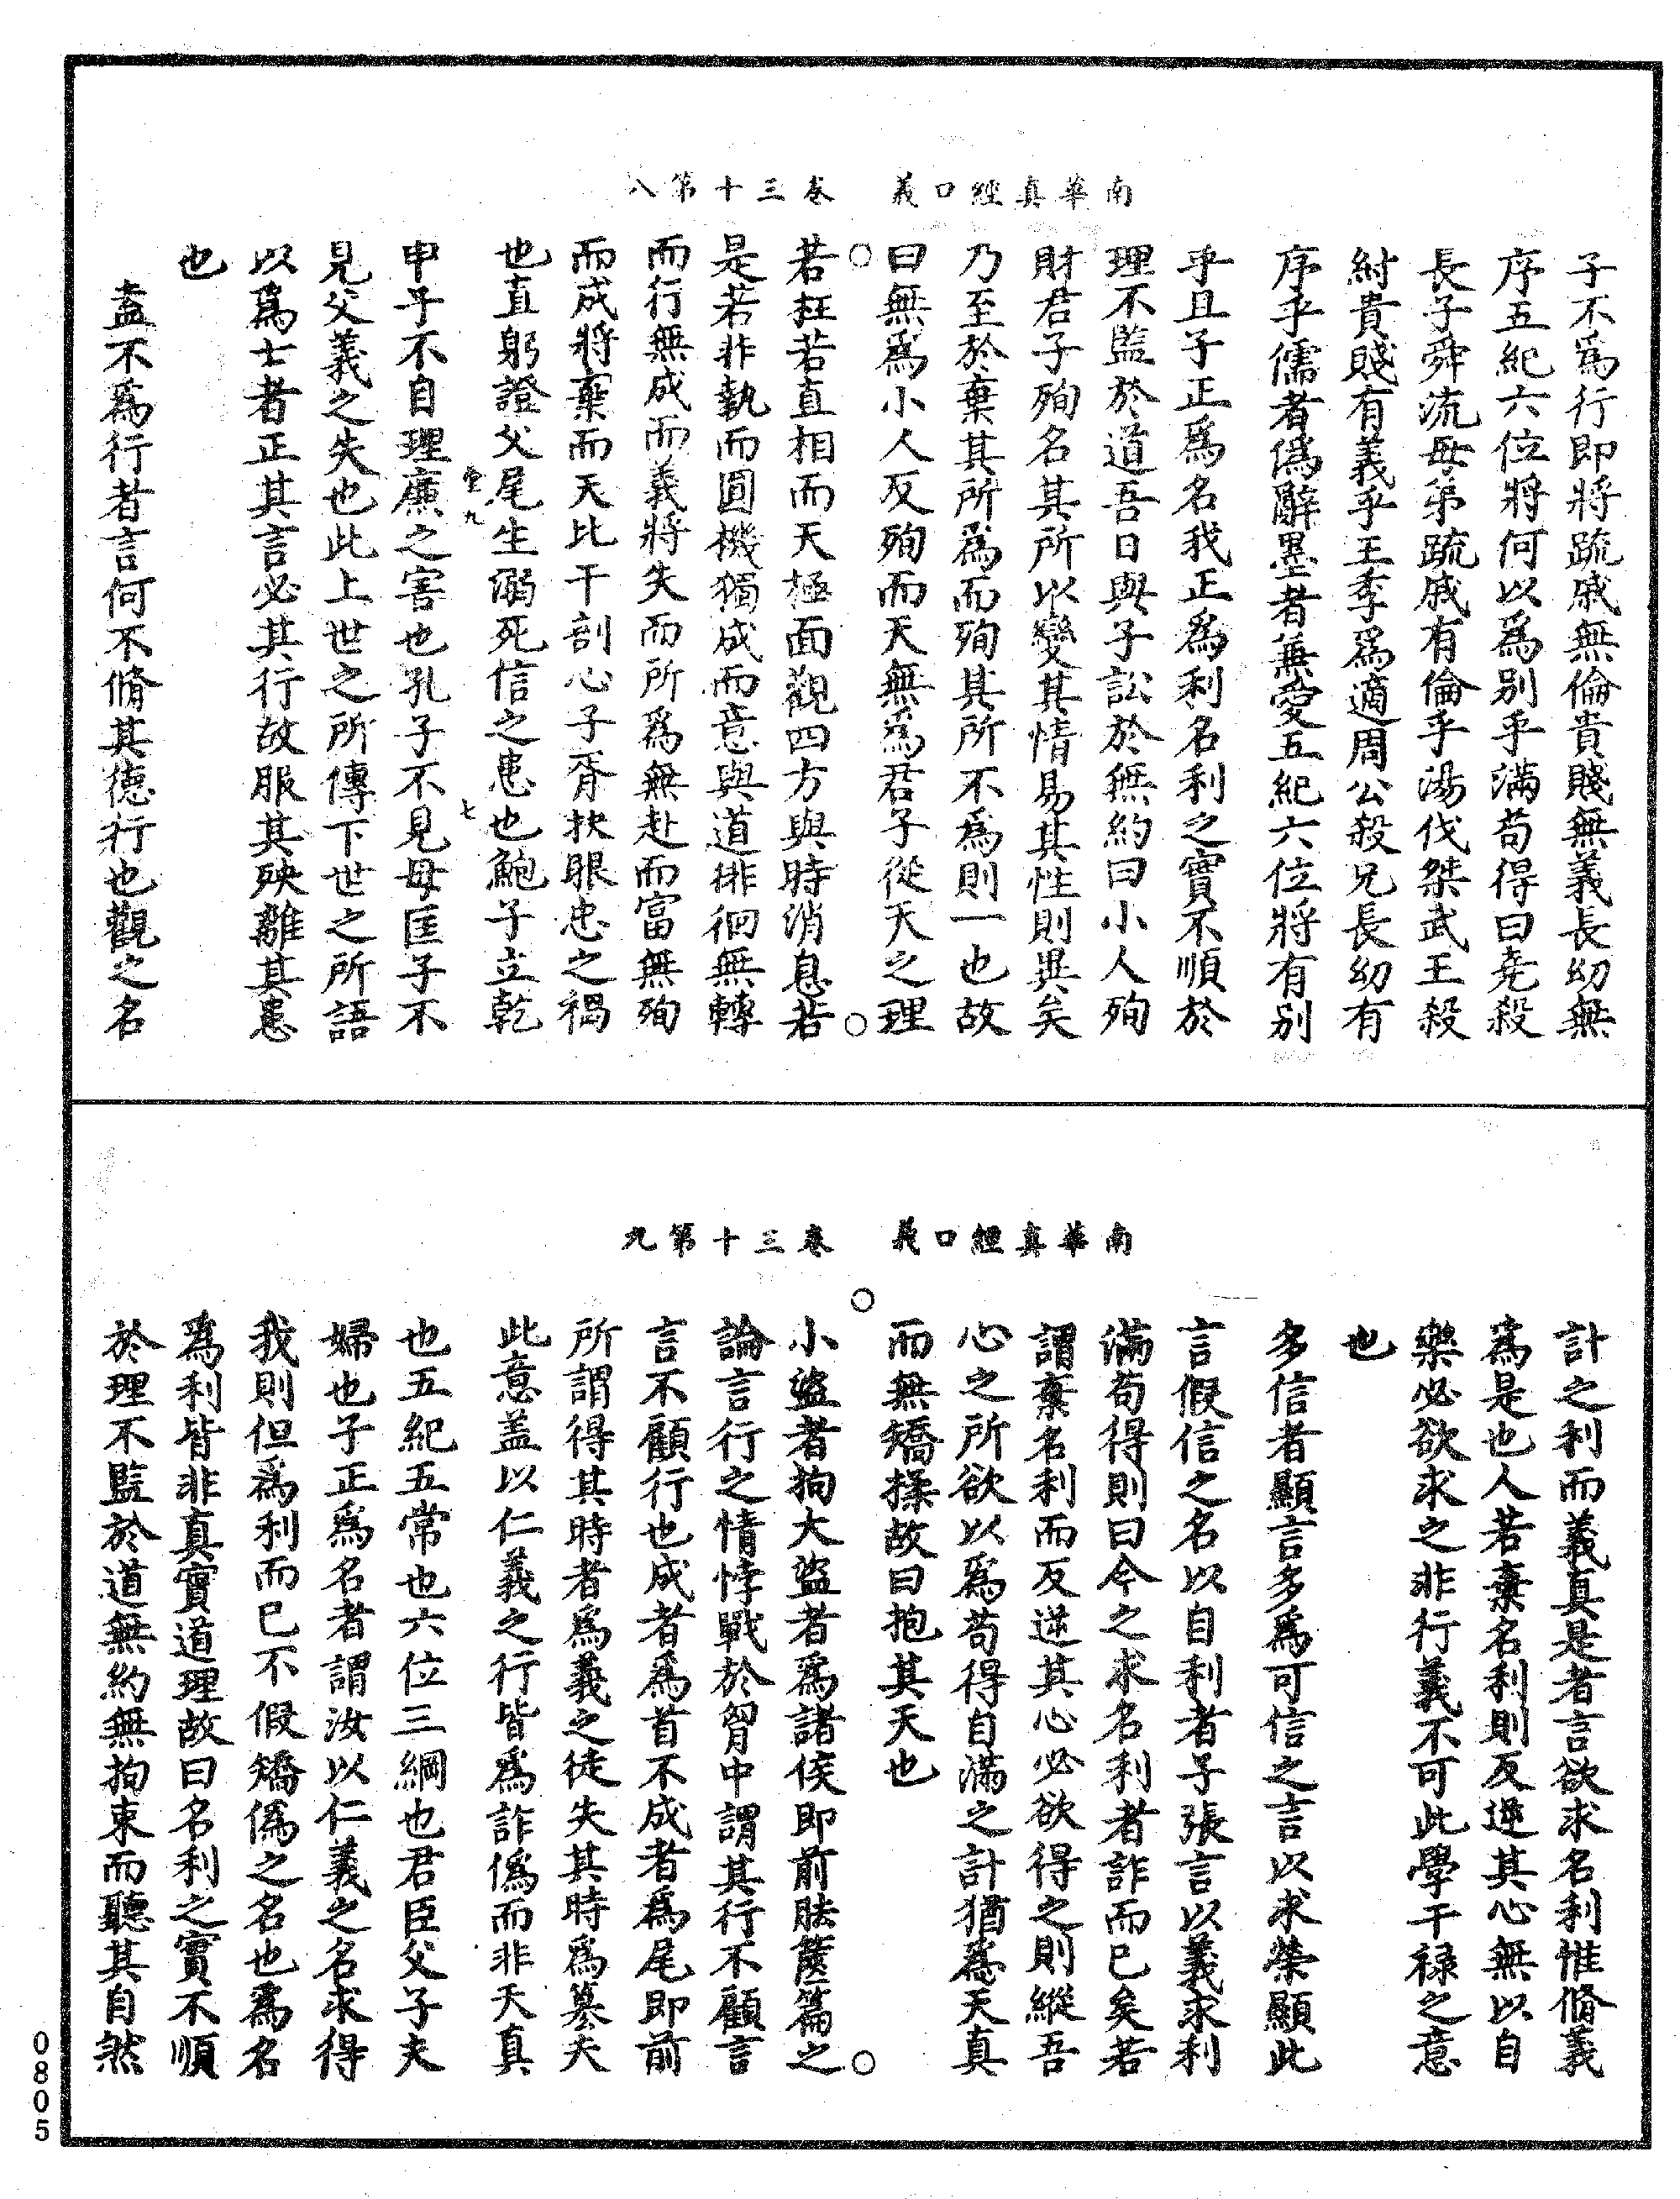 南華真經口義　卷三十第八
子不爲行即將疏戚無倫貴賤無義長幼無
序五紀六位將何以爲别乎滿苟得曰堯殺
長子舜流母弟疏戚有倫乎湯伐桀武王殺
紂貴賤有義乎王季爲適周公殺兄長幼有
序乎儒者僞辭墨者兼愛五紀六位將有别
乎且子正爲名我正爲利名利之實不順於
理不監於道吾日與子訟於無約曰小人殉
財君子殉名其所以變其情易其性則異矣
乃至於棄其所爲而殉其所不爲則一也故
曰無爲小人反殉而天無爲君子從天之理
若枉若直相而天極面觀四方與時消息若
是若非執而圓機獨成而意與道徘徊無轉
而行無成而義將失而所爲無赴而富無殉
而成將棄而天比干剖心子胥抉眼忠之禍
也直躬證父尾生溺死信之患也鮑子立乾
申子不自理廉之害也孔子不見母匡子不
見父義之失也此上世之所傳下世之所語
以爲士者正其言必其行故服其殃離其患
也
盍不爲行者言何不脩其德行也觀之名
南華真經口義　卷三十第九
計之利而義真是者言欲求名利惟脩義
爲是也人若棄名利則反逆其心無以自
樂必欲求之非行義不可此學干禄之意
也
多信者顯言多爲可信之言以求榮顯此
言假信之名以自利者子張言以義求利
滿苟得則曰今之求名利者詐而已矣若
謂棄名利而反逆其心必欲得之則縱吾
心之所欲以爲苟得自滿之計猶爲天真
而無矯揉故曰抱其天也
小盜者拘大盜者爲諸侯即前胠篋篇之
論言行之情悖戰於胷中謂其行不顧言
言不顧行也成者爲首不成者爲尾即前
所謂得其時者爲義之徒失其時爲篡夫
此意盖以仁義之行皆爲詐僞而非天真
也五紀五常也六位三綱也君臣父子夫
婦也子正爲名者謂汝以仁義之名求得
我則但爲利而已不假矯僞之名也爲名
爲利皆非真實道理故曰名利之實不順
於理不監於道無約無拘束而聽其自然
0805